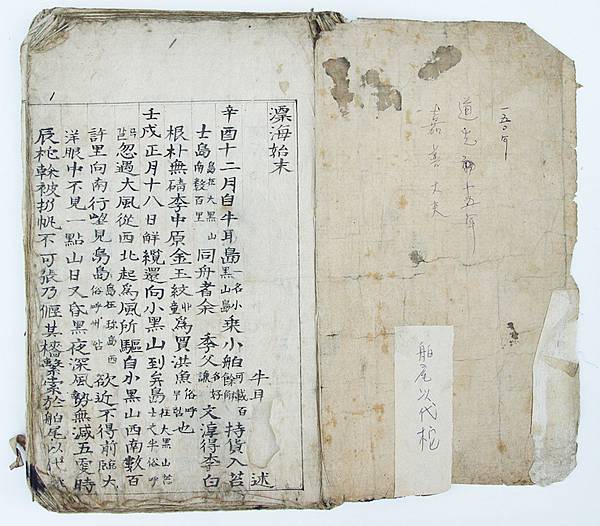 一五〇年
道光 十五年
嘉善大夫
舶尾以代柁
漂海始末
牛耳 述
辛酉十二月自牛耳島一名小黑山島乘小舶可載百餘斛持貨入苔
士島島在大黑山南數百里同舟者余 季父名好謙文淳得李白
根朴無碃李中原金玉紋丱童為買洪魚俗呼也
壬戌正月十八日觧纜還向小黑山到弁島在大黑山苔士半俗呼
忽遇大風從西北起為風所驅自小黑山西南數百
許里向南行望見島島島在珍島西俗呼欲近不得前臨大
洋眼中不見一點山日又昏黑夜深風勢無減五更時
辰柁幹被折帆不可張乃偃其檣繫索於舶尾以代